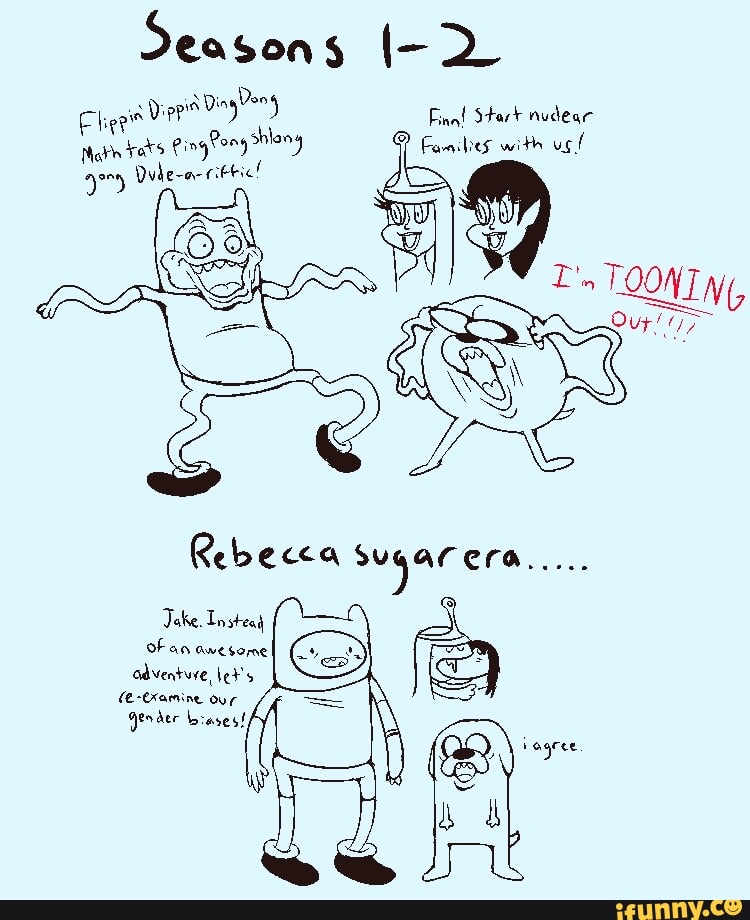 Seasons 1-2
Flippin' Dippin' Ding Dong
Math tats Ping Pong shlong
gong Dude-a-riffic!
Finn! Start nuclear
Families with us!
I'm TOONING
Out!!!!
Rebecca sugar era.....
Jake. Instead
of an awesome
adventure, let's
re-examine our
gender biases!
i agree.
ifunny.co